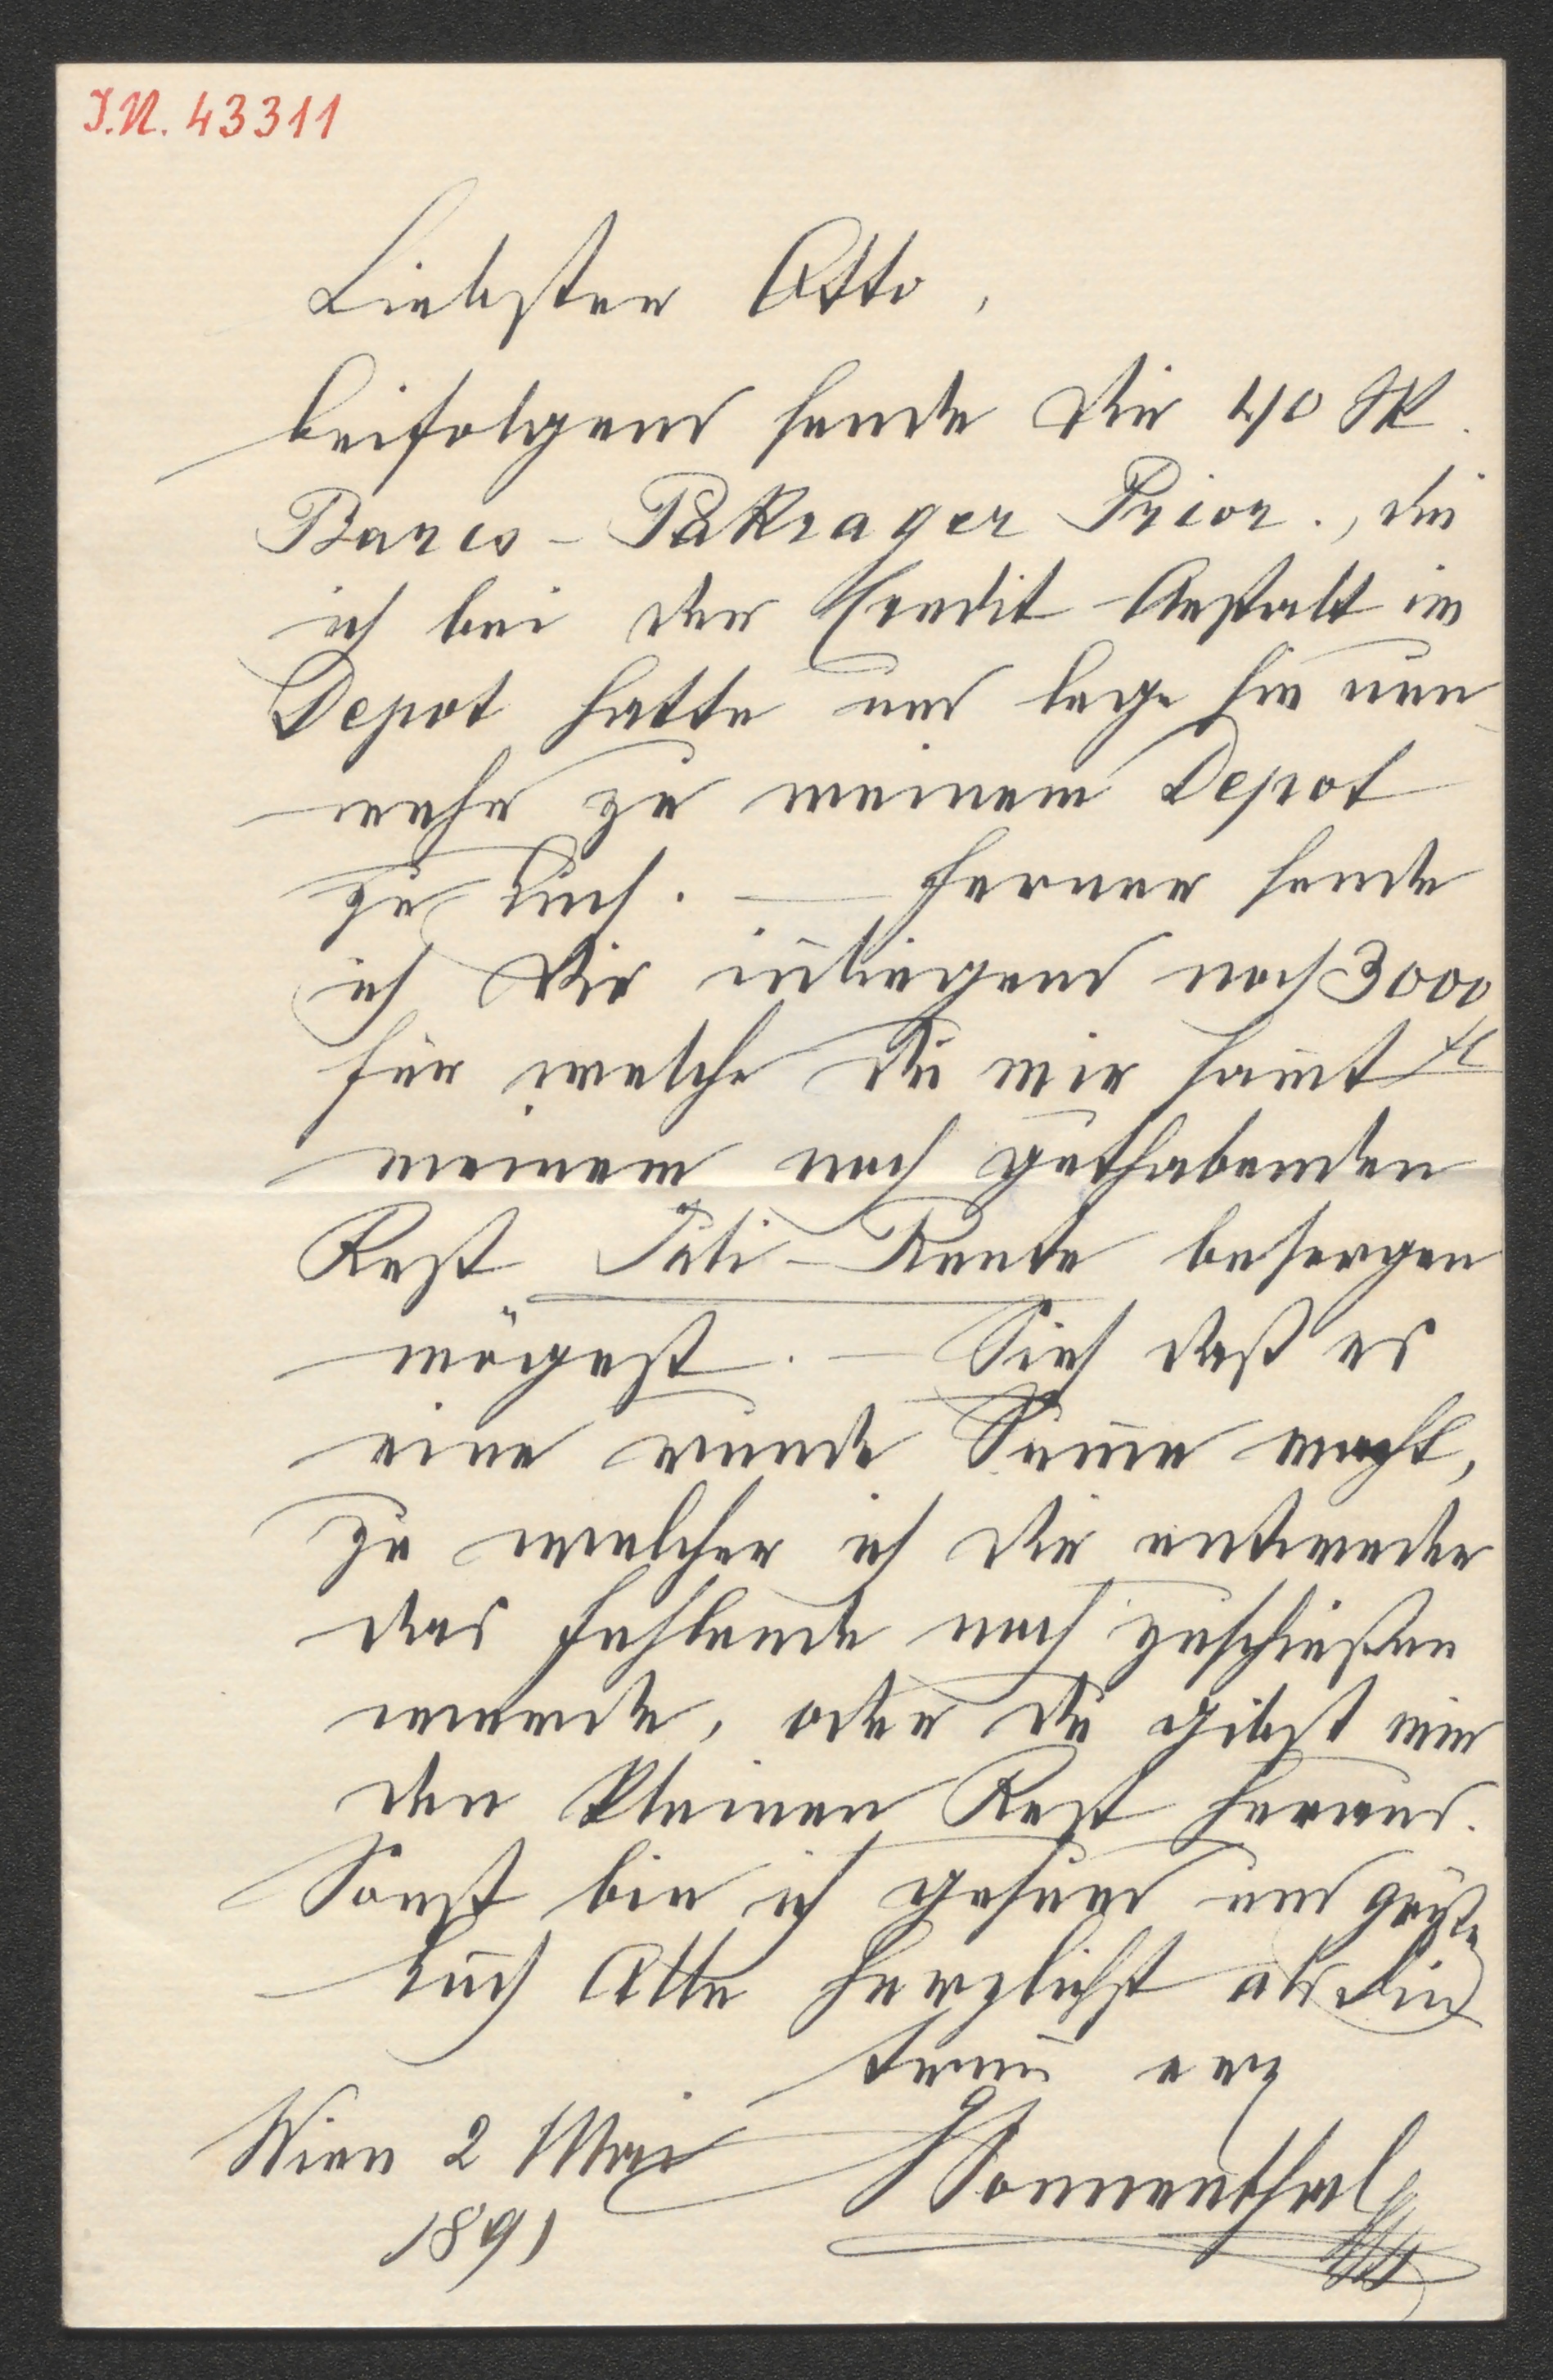 I.N. 43311
Liebster Otto,
beifolgend sende Dir 40 Stk.
Barcs-Pakrazer Prior., die
ich bei der Credit-Anstalt im
Depot hatte und lege sie nun
mehr zu meinem Depot
zu Euch. — Ferner sende
ich Dir inliegend noch 3000
fl
für welche Du mir samt
meinem noch guthabenden
Rest Juli-Rente besorgen
mögest. — Sieh daß es
eine runde Summe macht,
zu welcher ich Dir entweder
das Fehlende noch zuschießen
werde, oder Du gibst mir
den kleinen Rest heraus.
Sonst bin ich gesund und grüße
Euch Alle herzlichst als Dein
treu erg
Sonnenthal
Wien 2 Mai
1891